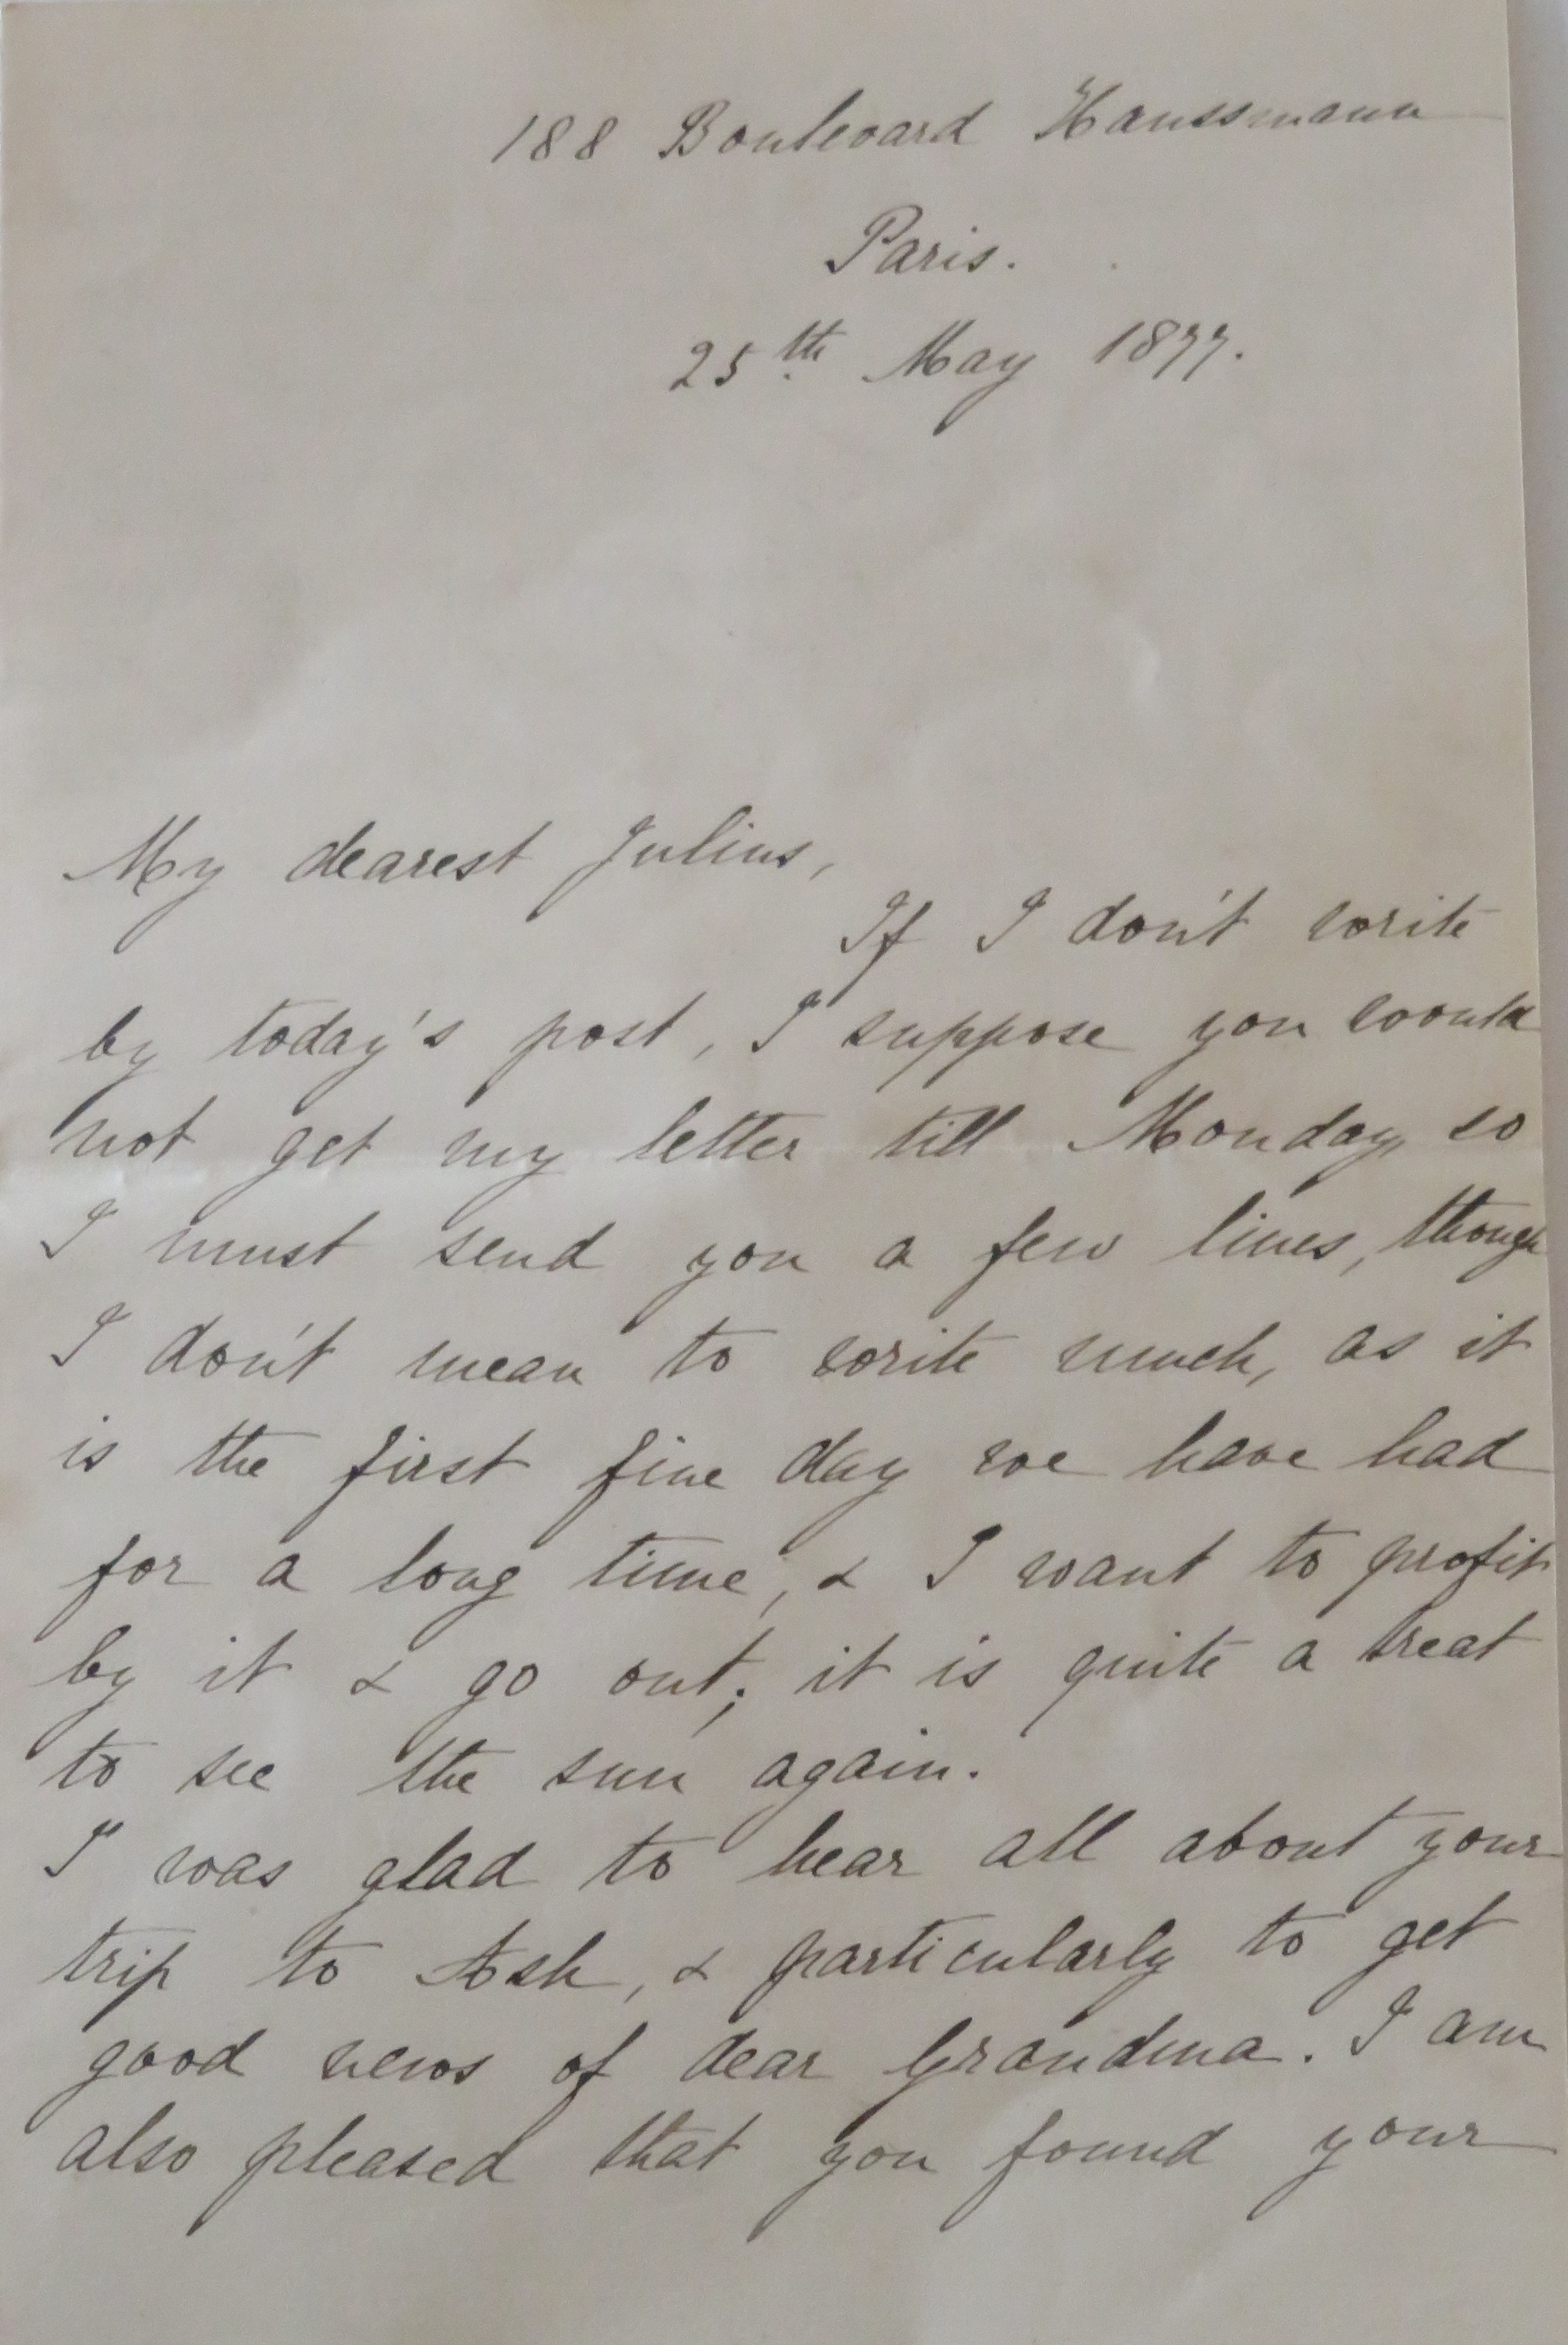 188 Boulevard Haussmann
Paris.
25th May 1877.
My dearest Julius,
If I don't write
by today's post, I suppose you would
not get my letter till Monday, so
I must send you a few lines, though
I don't mean to write much, as it
is the first fine day we have had
for a long time, & I want to profit
by it & go out; it is quite a treat
to see the sun again.
I was glad to hear all about your
trip to Ash, & particularly to get
good news of dear Grandma. I am
also pleased that you found your